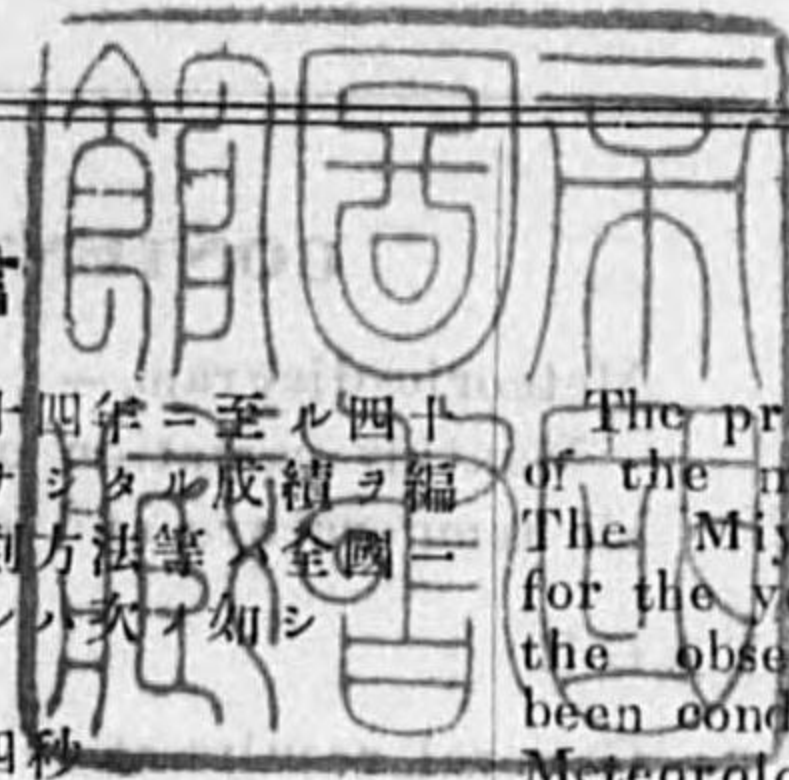 帝國圖書館藏
十四年ニ至ル四十
ナシタル成績ヲ編
方法等ハ全國ニ
ハ次ノ如シ
四秒
The pr
of the m
The Miy
for the y
the obse
been cond
Meteorolo